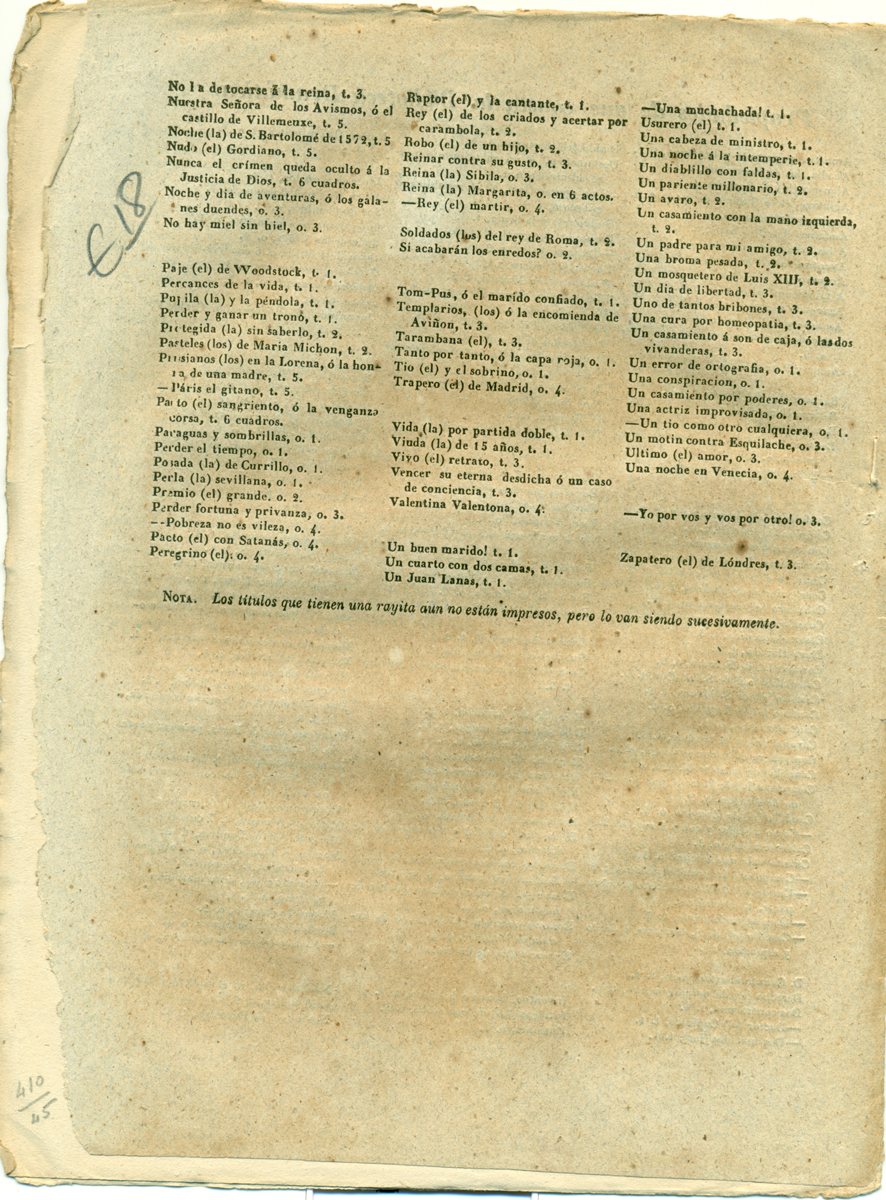 No ha de tocarse á la reina, t. 3.
Nuestra Señora de los Avismos, ó el
castillo de Villemeuxe, t. 5.
Noche (la) de S. Bartolomé de 1572, t. 5
Nudo (el) Gordiano, t. 5.
Nunca el crímen queda oculto á la
Justicia de Dios, t. 6 cuadros.
Noche y dia de aventuras, ó los gala-
nes duendes, o. 3.
No hay miel sin hiel, o. 3.
Paje (el) de Woodstock, t. 1.
Percances de la vida, t. 1.
Pupila (la) y la péndola, t. 1.
Perder y ganar un trono, t. 1.
Protegida (la) sin saberlo, t. 2.
Pasteles (los) de Maria Michon, t. 2.
Prusianos (los) en la Lorena, ó la hon-
ra de una madre, t. 5.
—Páris el gitano, t. 5.
Pacto (el) sangriento, ó la venganza
corsa, t. 6 cuadros.
Paraguas y sombrillas, o. 1.
Perder el tiempo, o. 1.
Posada (la) de Currillo, o. 1.
Perla (la) sevillana, o. 1.
Premio (el) grande. o. 2.
Perder fortuna y privanza, o. 3.
—Pobreza no es vileza, o. 4.
Pacto (el) con Satanás, o. 4.
Peregrino (el): o. 4.
Raptor (el) y la cantante, t. 1.
Rey (el) de los criados y acertar por
carambola, t. 2.
Robo (el) de un hijo, t. 2.
Reinar contra su gusto, t. 3.
Reina (la) Sibila, o. 3.
Reina (la) Margarita, o. en 6 actos.
—Rey (el) martir, o. 4.
Soldados (los) del rey de Roma, t. 2.
Si acabarán los enredos? o. 2.
Tom-Pus, ó el marído confiado, t. 1.
Templarios, (los) ó la encomienda de
Aviñon, t. 3.
Tarambana (el), t. 3.
Tanto por tanto, ó la capa roja, o. 1.
Tio (el) y el sobrino, o. 1.
Trapero (el) de Madrid, o. 4.
Vida (la) por partida doble, t. 1.
Viuda (la) de 15 años, t. 1.
Vivo (el) retrato, t. 3.
Vencer su eterna desdicha ó un caso
de conciencia, t. 3.
Valentina Valentona, o. 4.
Un buen marido! t. 1.
Un cuarto con dos camas, t. 1.
Un Juan Lanas, t. 1.
—Una muchachada! t. 1.
Usurero (el) t. 1.
Una cabeza de ministro, t. 1.
Una noche á la intemperie, t. 1.
Un diablillo con faldas, t. 1.
Un pariente millonario, t. 2.
Un avaro, t. 2.
Un casamiento con la maño izquierda,
t. 2.
Un padre para mi amigo, t. 2.
Una broma pesada, t. 2.
Un mosquetero de Luis XIII, t. 2.
Un dia de libertad, t. 3.
Uno de tantos bribones, t. 3.
Una cura por homeopatia, t. 3.
Un casamiento á son de caja, ó las dos
vivanderas, t. 3.
Un error de ortografia, o. 1.
Una conspiracion, o. 1.
Un casamiento por poderes, o. 1.
Una actriz improvisada, o. 1.
—Un tio como otro cualquiera, o. 1.
Un motin contra Esquilache, o. 3.
Ultimo (el) amor, o. 3.
Una noche en Venecia, o. 4.
—Yo por vos y vos por otro! o. 3.
Zapatero (el) de Lóndres, t. 3.
NOTA. Los títulos que tienen una rayita aun no están impresos, pero lo van siendo sucesivamente.
E18
410
45